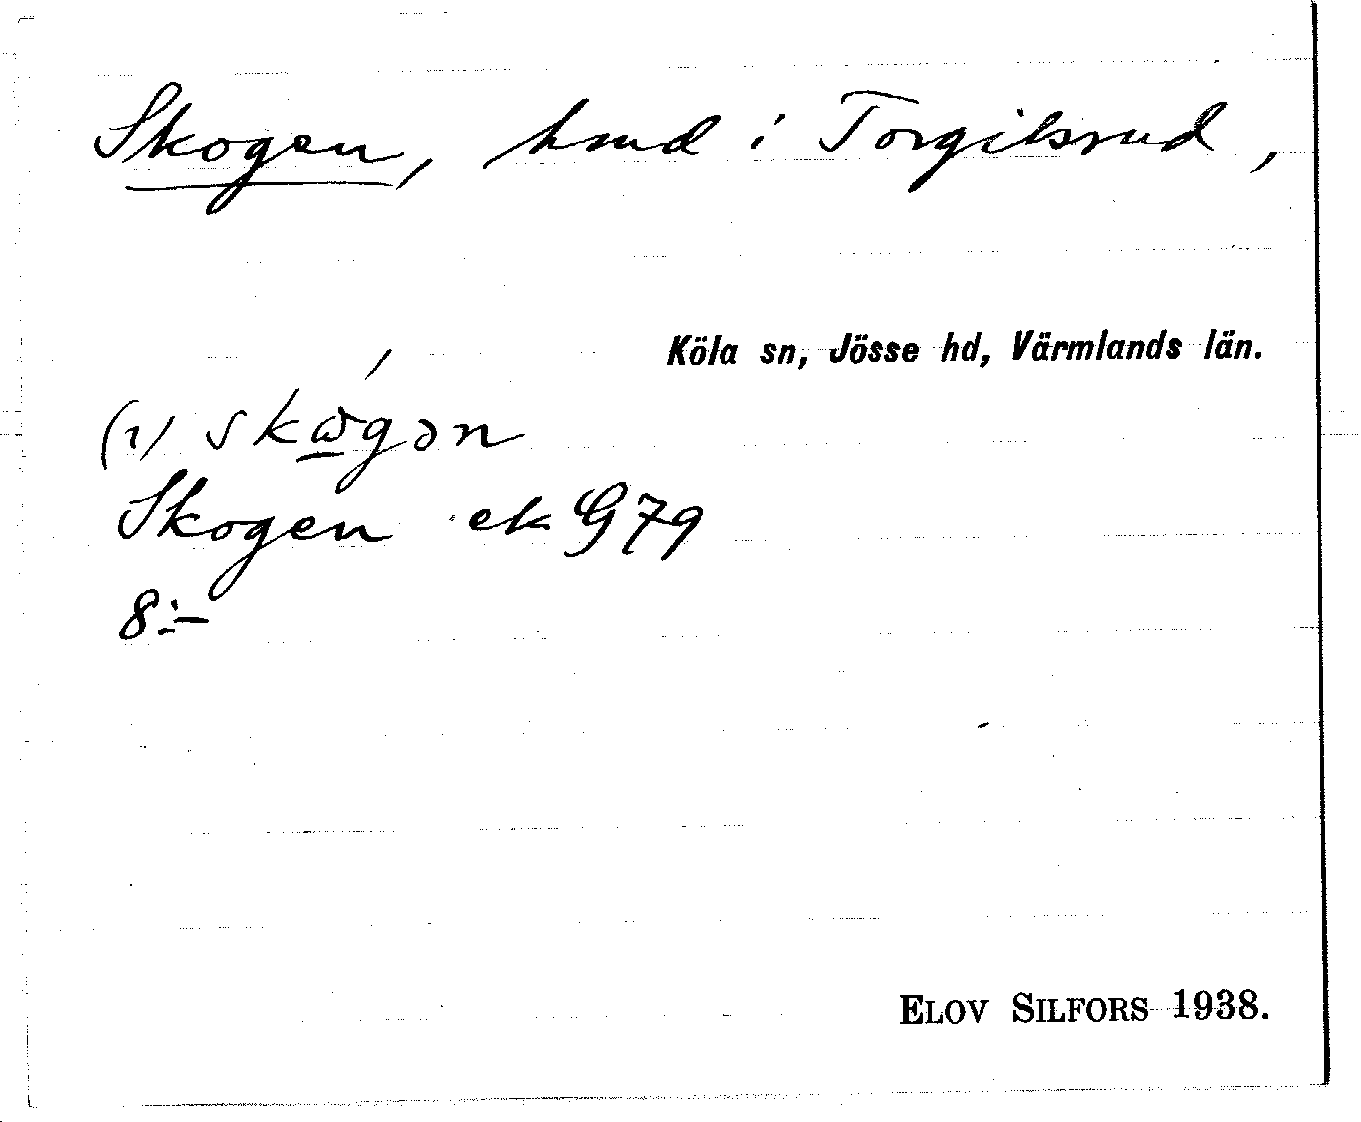 Skogen, hmd i Torgilsrud,
Köla sn, Jösse hd, Värmlands län.
(1) skωgən
Skogen ek G79
8:-
ELOV SILFORS 1938.